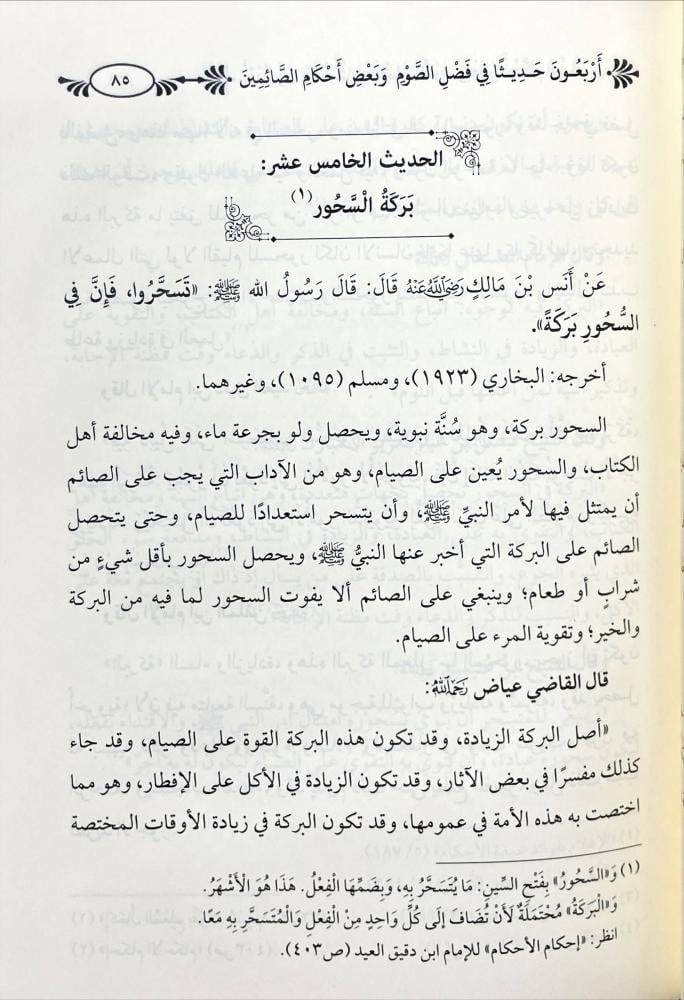 أَرْبَعُونَ حَدِيثًا فِي فَضْلِ الصَّوْمِ وَبَعْضِ أَحْكَامِ الصَّائِمِينَ ٨٥
الحديث الخامس عشر:
بَرَكَةُ السَّحُور (١)
عَنْ أَنَس بْنَ مَالِكٍ رَضِيَ اللَّهُ عَنْهُ قَالَ: قَالَ رَسُولُ الله ﷺ: «تَسَحَّرُوا، فَإِنَّ فِي
السُّحُورِ بَرَكَةً».
أخرجه: البخاري (١٩٢٣)، ومسلم (١٠٩٥)، وغيرهما.
السحور بركة، وهو سُنَّة نبوية، ويحصل ولو بجرعة ماء، وفيه مخالفة أهل
الكتاب، والسحور يُعين على الصيام، وهو من الآداب التي يجب على الصائم
أن يمتثل فيها لأمر النبيِّ ﷺ، وأن يتسحر استعدادًا للصيام، وحتى يتحصل
الصائم على البركة التي أخبر عنها النبيُّ ﷺ، ويحصل السحور بأقل شيءٍ من
شرابٍ أو طعام؛ وينبغي على الصائم ألا يفوت السحور لما فيه من البركة
والخير؛ وتقوية المرء على الصيام.
قال القاضي عياض رَحِمَهُ اللَّهُ:
«أصل البركة الزيادة، وقد تكون هذه البركة القوة على الصيام، وقد جاء
كذلك مفسرًا في بعض الآثار، وقد تكون الزيادة في الأكل على الإفطار، وهو مما
اختصت به هذه الأمة في عمومها، وقد تكون البركة في زيادة الأوقات المختصة
(١) وَ«السَّحُورُ» بِفَتْحِ السِّينِ: مَا يُتَسَحَّرُ بِهِ، وَبِضَمِّهَا الْفِعْلُ. هَذَا هُوَ الْأَشْهَرُ.
وَ«الْبَرَكَةُ» مُحْتَمَلَةٌ لَأَنْ تُضَافَ إِلَى كُلِّ وَاحِدٍ مِنْ الْفِعْلِ وَالْمُتَسَحَّرِ بِهِ مَعًا.
انظر: «إحكام الأحكام» للإمام ابن دقيق العيد (ص٤٠٣).